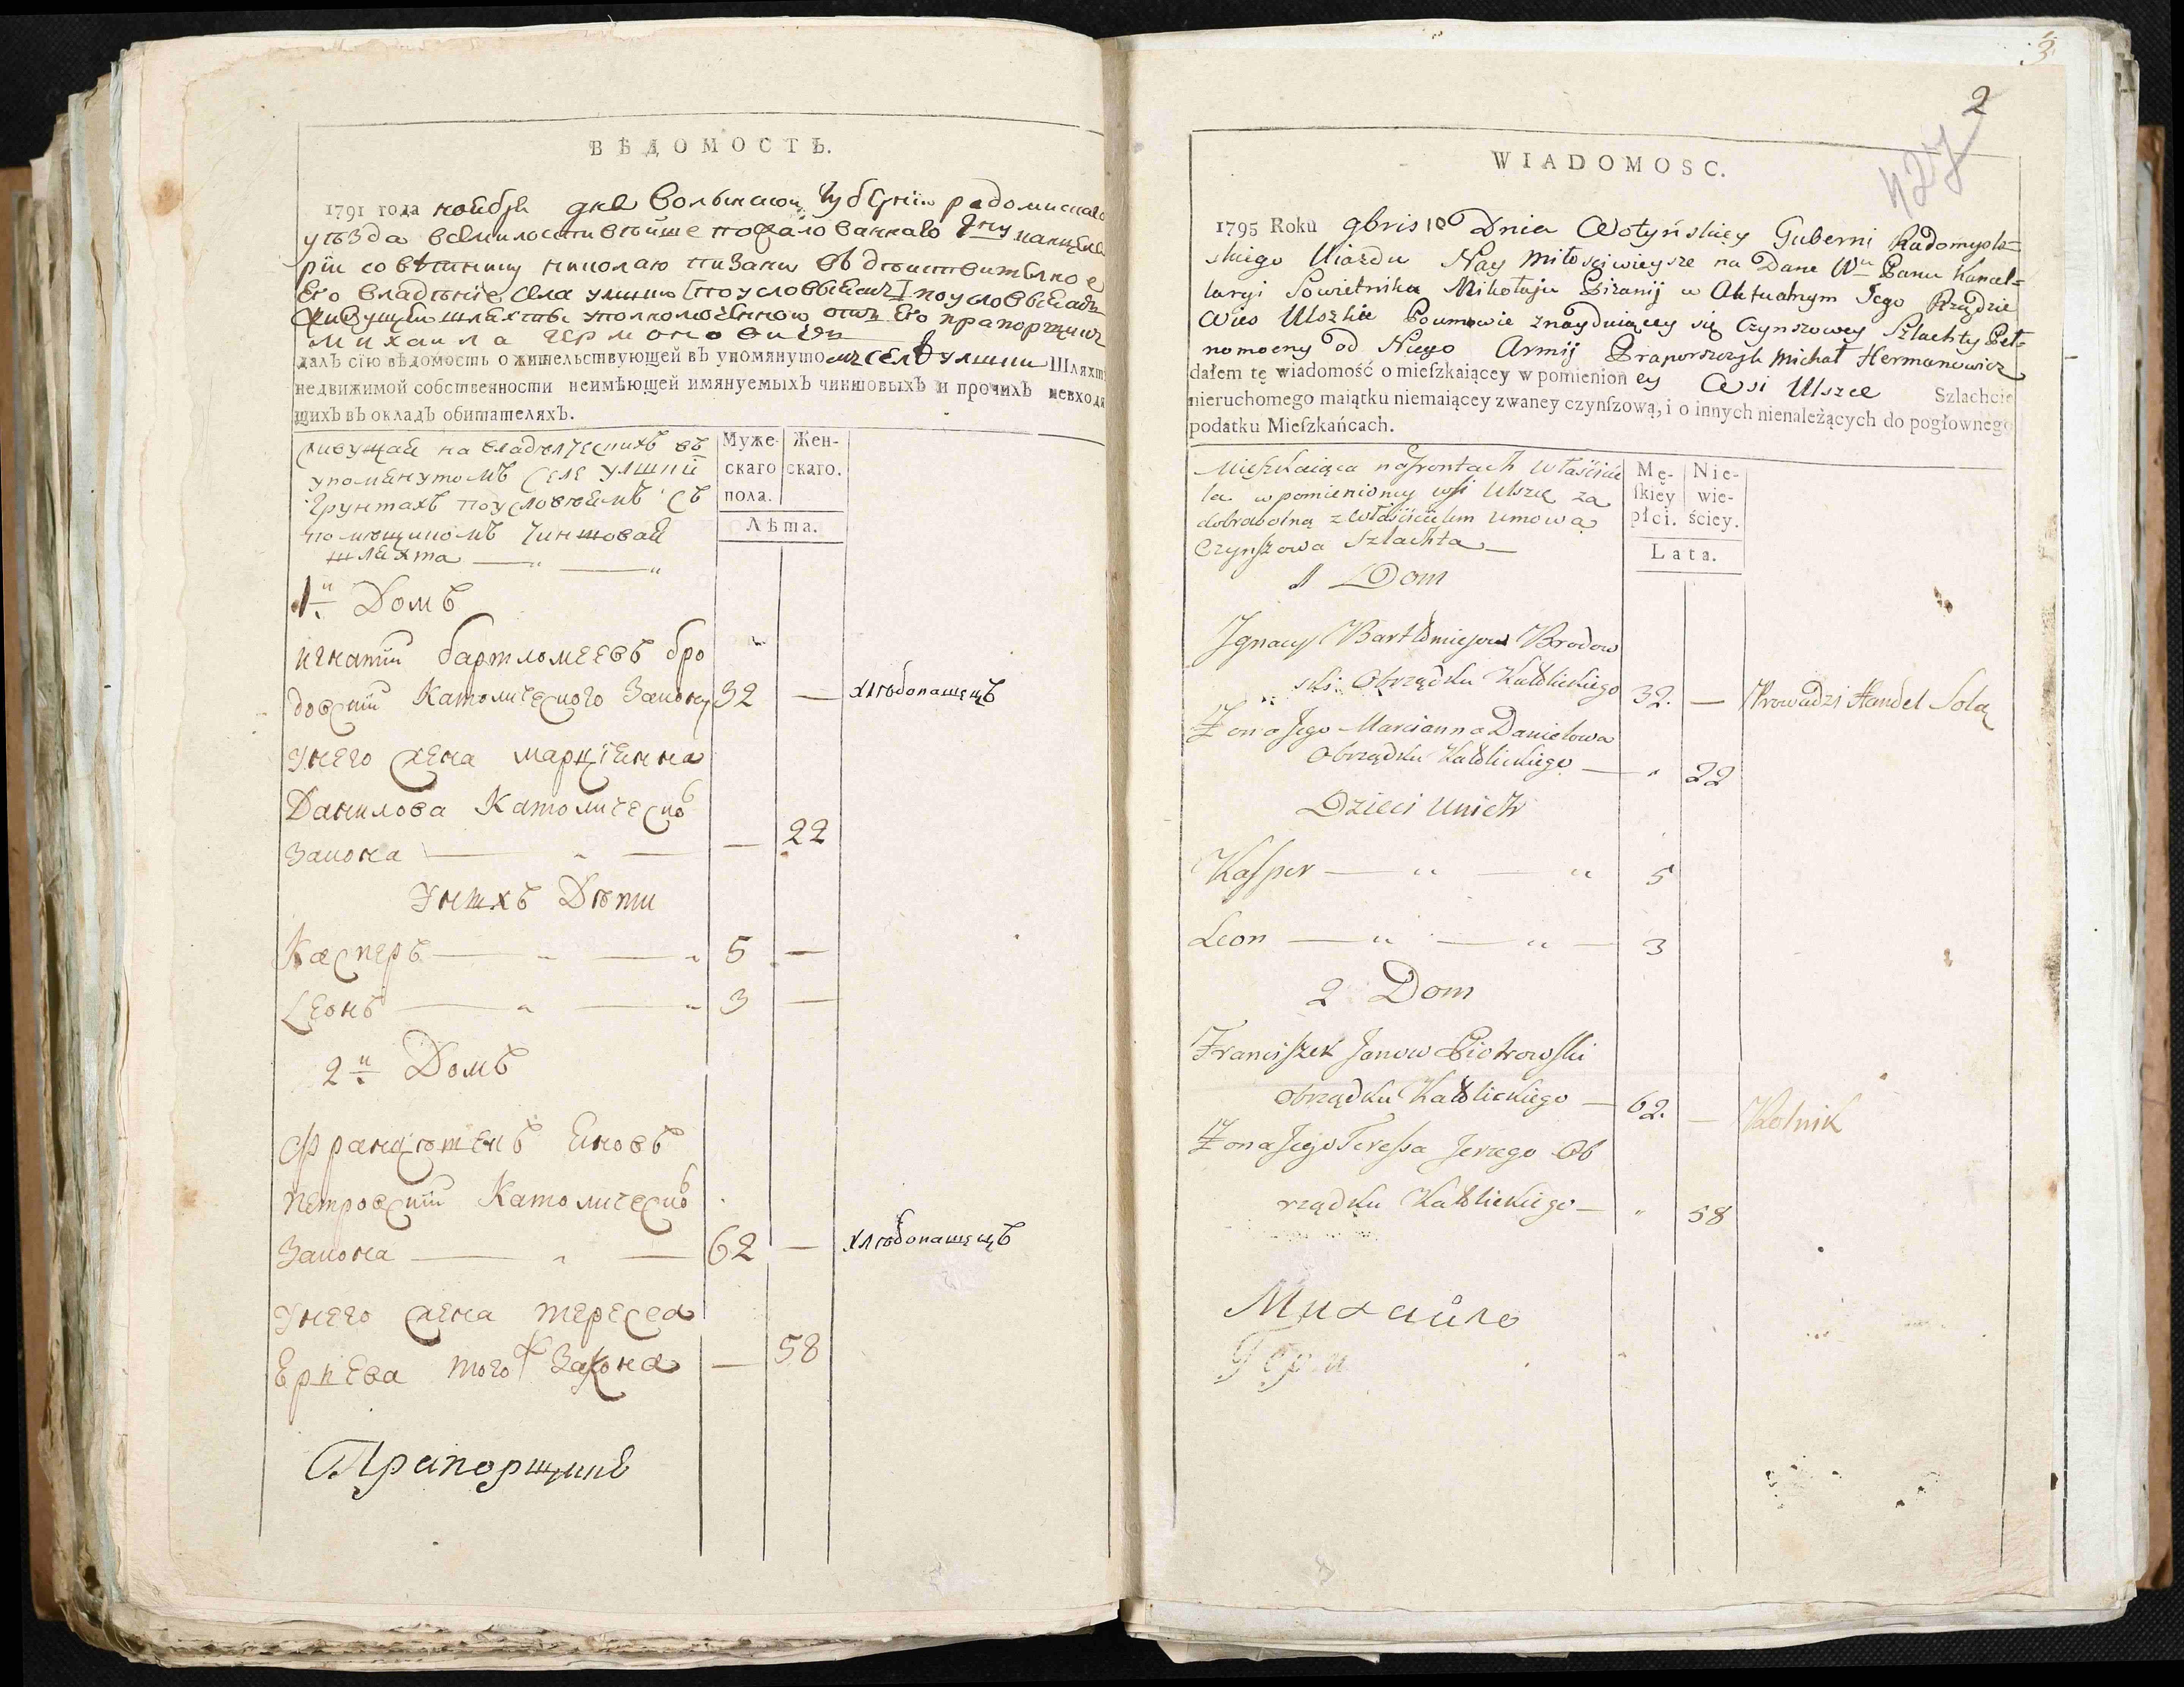 ВѢДОМОСТЬ.
1791 года ноября дня Волынской губернии радомиска
уезда всемилостивейше пожалованнаго
рии советнику николаю пизани въ действительное
Его владение села улшки
живущей шляхты уполномоченной отъ Его прапорщикъ
Михаила Германовичъ
далъ сію вѣдомость о жительствующей въ упомянутомъ селѣ улшки Шляхт
недвижимой собственности неимѣющей имянуемыхъ чиншовыхъ и прочихъ невходя
щихъ въ окладъ обитателяхъ.
живущая на владелческихъ въ
упомянутомъ селе улшки
грунтахъ по условиемъ съ
помещикомъ чиншовая
шляхта — " — "
Муже- Жен-
скаго скаго.
пола.
Лѣта.
1й Домъ
игнатии бартломеевъ бро
довскии Католического Закону 32 — хлебопашецъ
Унего жена марциянна
Данилова Католическо
Закона — " — — 22
Унихъ Дети
Касперъ — " — " 5 —
Леонъ — " — " 3 —
2й Домъ
Францишекъ Яновъ
петровскии Католическо
Закона — " — 62 — хлебопашецъ
Унего жена тересса
Ериева того ж Закона — 58
Прапорщикъ
3
2
427
WIADOMOSC.
1795 Roku 9bris 10 Dnia Wołyńskiey Guberni Radomysls=
skiego Uiazdu Nay miłosciwieysze na Dane Wu Panu Kancel=
laryi Sowietnika Mikołaju Pizanij w Aktualnym Jego Rządzie
Wies Ulszkie Poumowie znayduiącey się Czynszowey Szlachty Peł=
nomocny od Niego Armij Praporszczyk Michał Hermanowicz
dałem tę wiadomość o mieſzkaiącey w pomienioney Wsi Ulszce Szlachcie
nieruchomego maiątku niemaiącey zwaney czynſzową, i o innych nienależących do pogłownego
podatku Mieſzkańcach.
Mieszkaiąca na frontach właścicie
la w pomienioney wsi Ulszce za
dobrowolną z właścicielem umową
Czynszowa Szlachta —
Mę- Nie-
ſkiey wie-
płci. ściey.
Lata.
1 Dom
Jgnacy Bartłomiejow Brodow
ski Obrządku Katolickiego 32. — Prowadzi Handel Solą
Zona Jego Marcianna Danielowa
Obrządku Katolickiego — " 22
Dzieci unich
Kaſper — " — " 5
Leon — " — " — 3
2 Dom
Franciſzek Janow Piotrowſki
obrządku Katolickiego — 62. — Rolnik
Zona Jego Tereſsa Jerzego Ob
rządku Katolickiego — " 58
Михайло
Герм